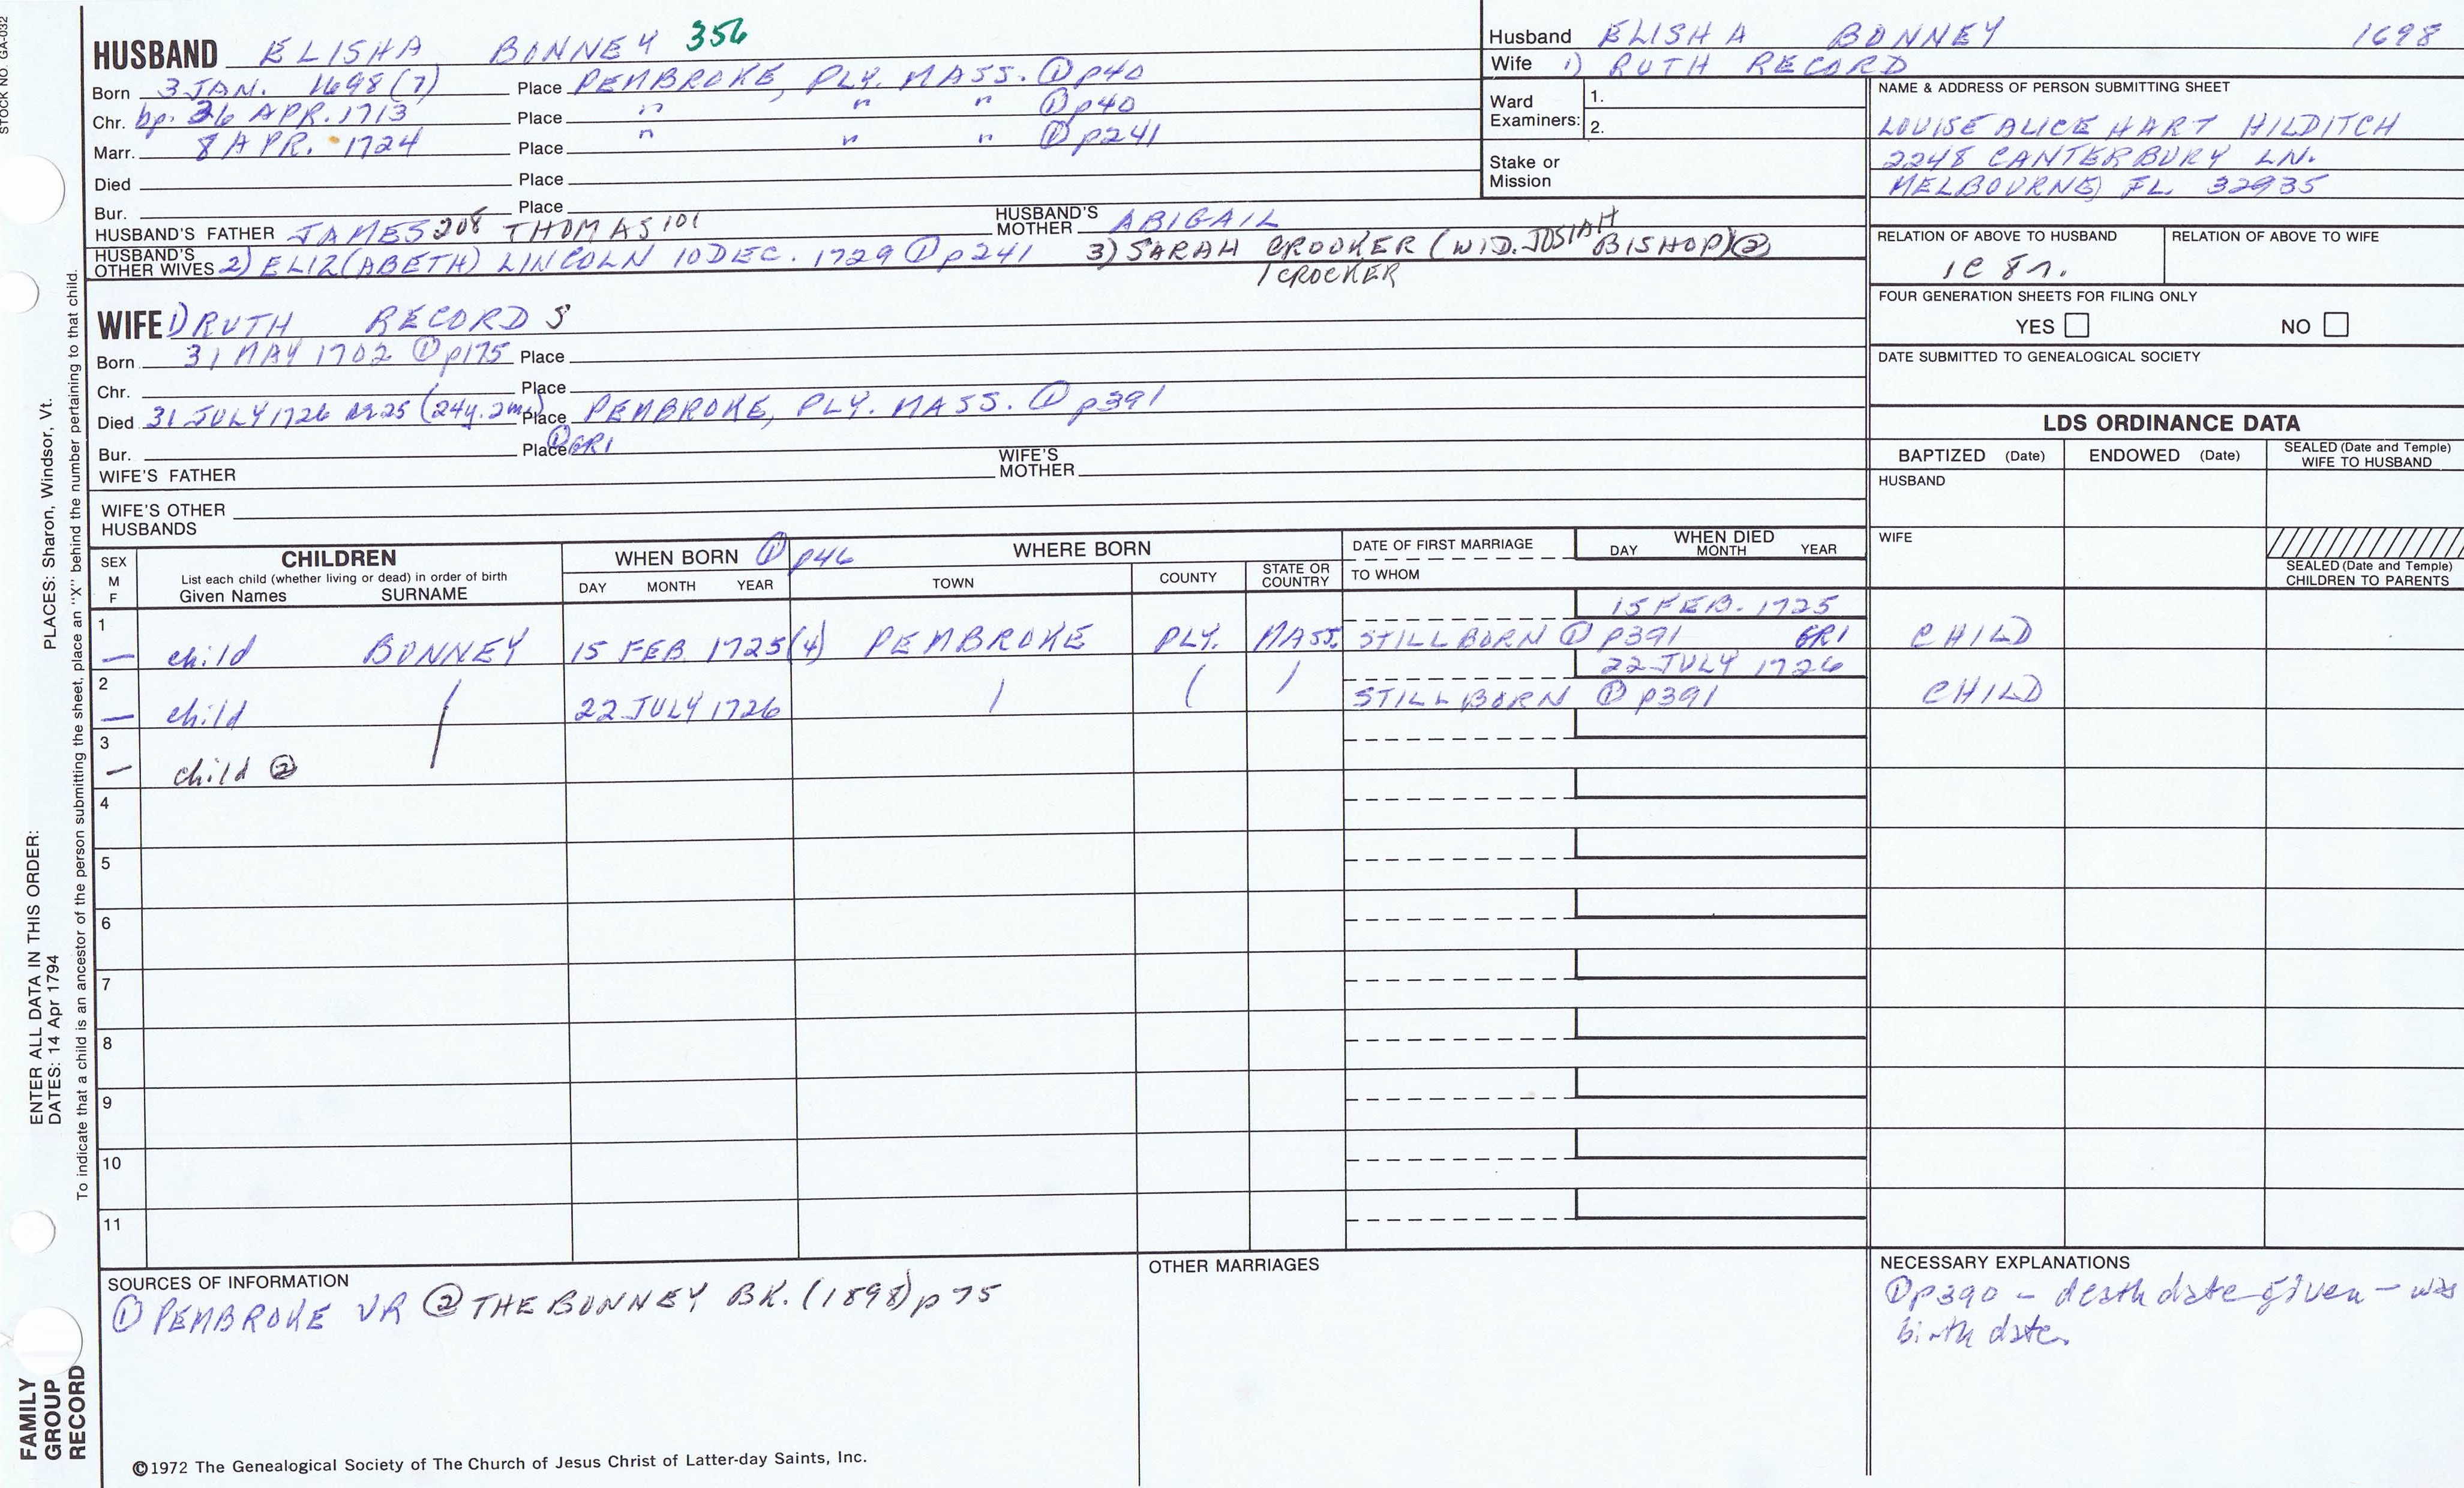 STOCK NO. GA-032
HUSBAND ELISHA BONNEY 356
Born 3 JAN. 1698(7) Place PEMBROKE, PLY. MASS. ① p40
Chr. bp. 26 APR. 1713 Place " " " ① p40
Marr. 8 APR. 1724 Place " " " ① p241
Died Place
Bur. Place
HUSBAND'S FATHER JAMES 208 THOMAS 101 HUSBAND'S MOTHER ABIGAIL
HUSBAND'S OTHER WIVES 2) ELIZ(ABETH) LINCOLN 10 DEC. 1729 ① p241 3) SARAH CROOKER (WID. JOSIAH BISHOP) ②
/CROCKER
Husband ELISHA BONNEY 1698
Wife 1) RUTH RECORD
Ward Examiners: 1.
2.
Stake or Mission
NAME & ADDRESS OF PERSON SUBMITTING SHEET
LOUISE ALICE HART HILDITCH
2248 CANTERBURY LN.
MELBOURNE, FL. 32935
RELATION OF ABOVE TO HUSBAND RELATION OF ABOVE TO WIFE
1C 8r.
FOUR GENERATION SHEETS FOR FILING ONLY
YES NO
DATE SUBMITTED TO GENEALOGICAL SOCIETY
WIFE 1) RUTH RECORD S
Born 31 MAY 1702 ① p175 Place
Chr. Place
Died 31 JULY 1726 ae 25 (24y. 2m.) Place PEMBROKE, PLY. MASS. ① p391
Bur. Place ① GR1
WIFE'S FATHER WIFE'S MOTHER
WIFE'S OTHER HUSBANDS
LDS ORDINANCE DATA
BAPTIZED (Date) ENDOWED (Date) SEALED (Date and Temple) WIFE TO HUSBAND
HUSBAND
WIFE
SEALED (Date and Temple) CHILDREN TO PARENTS
SEX M F CHILDREN List each child (whether living or dead) in order of birth Given Names SURNAME
WHEN BORN ① p46 DAY MONTH YEAR
WHERE BORN TOWN COUNTY STATE OR COUNTRY
DATE OF FIRST MARRIAGE TO WHOM
WHEN DIED DAY MONTH YEAR
15 FEB. 1725
1 — child BONNEY 15 FEB 1725(4) PEMBROKE PLY. MASS. STILLBORN ① p391 GR1 CHILD
22 JULY 1726
2 — child / 22 JULY 1726 / / / STILLBORN ① p391 CHILD
3 — child ②
4
5
6
7
8
9
10
11
SOURCES OF INFORMATION
① PEMBROKE VR ② THE BONNEY BK. (1898) p 75
OTHER MARRIAGES
NECESSARY EXPLANATIONS
① p390 - death date given - was
birth date.
©1972 The Genealogical Society of The Church of Jesus Christ of Latter-day Saints, Inc.
ENTER ALL DATA IN THIS ORDER:
DATES: 14 Apr 1794 PLACES: Sharon, Windsor, Vt.
To indicate that a child is an ancestor of the person submitting the sheet, place an "X" behind the number pertaining to that child.
FAMILY
GROUP
RECORD